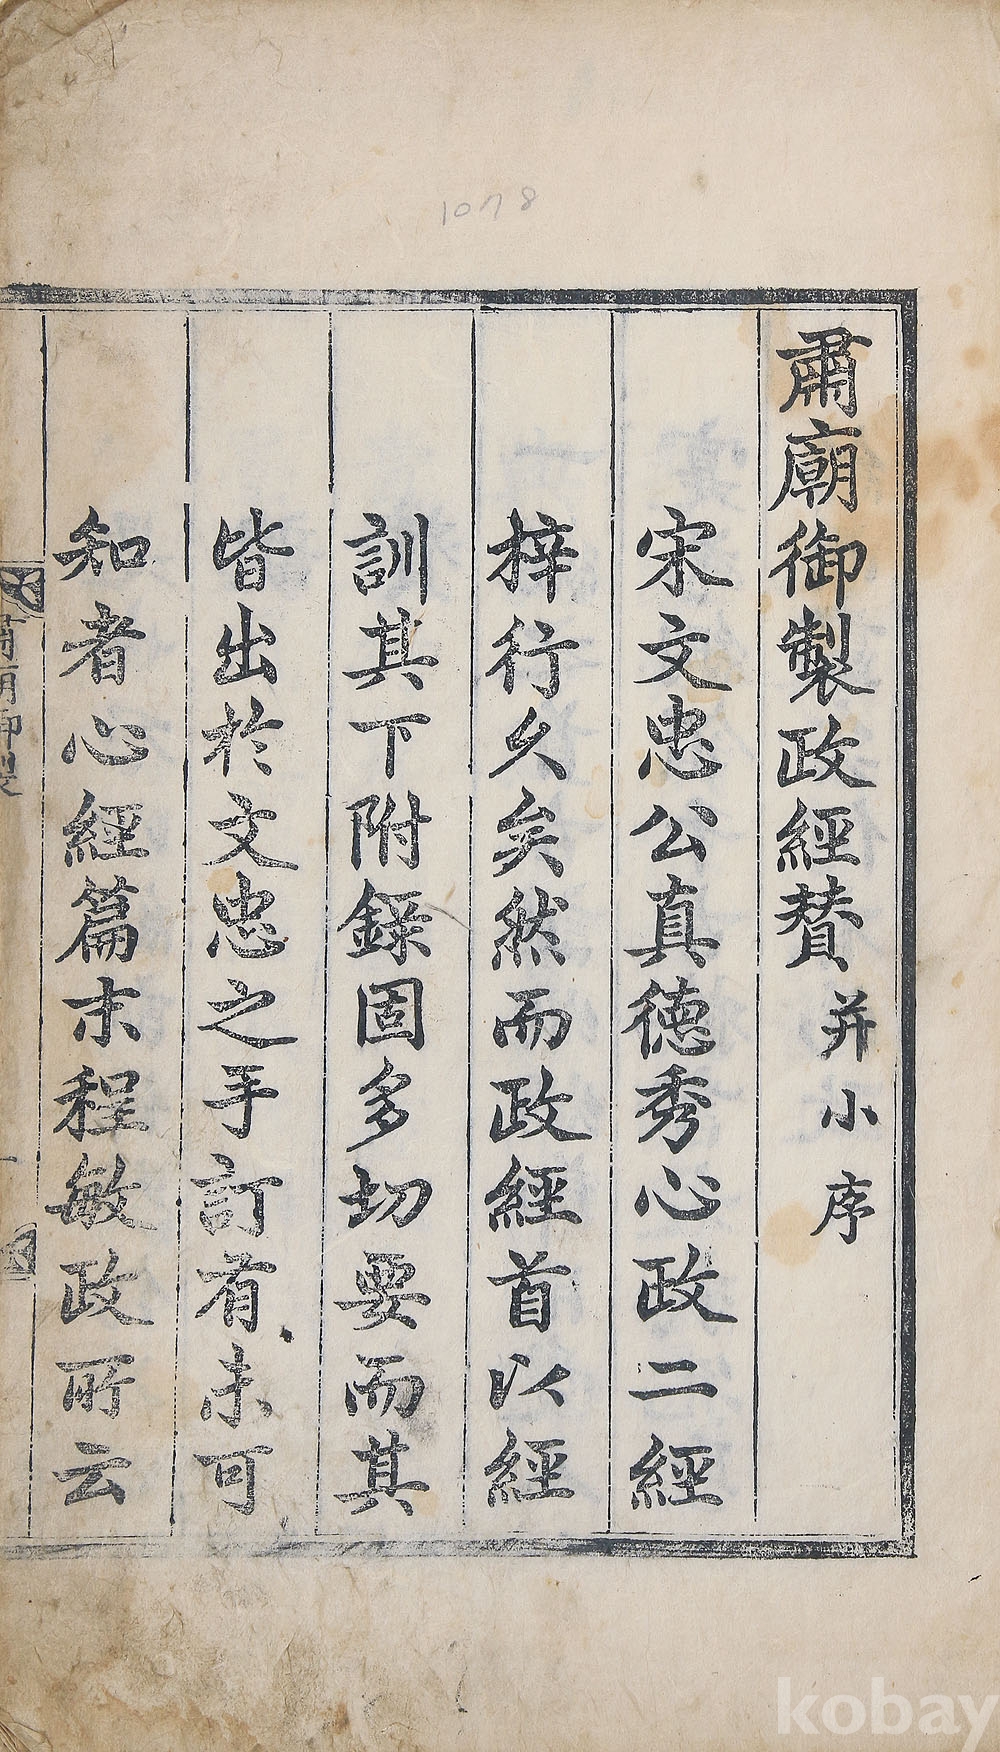 1078
肅廟御製政經賛 并小序
宋文忠公真德秀心政二經
梓行久矣然而政經首以經
訓其下附錄固多切要而其
皆出於文忠之手訂有未可
知者心經篇末程敏政所云
肅廟御製
一
kobay